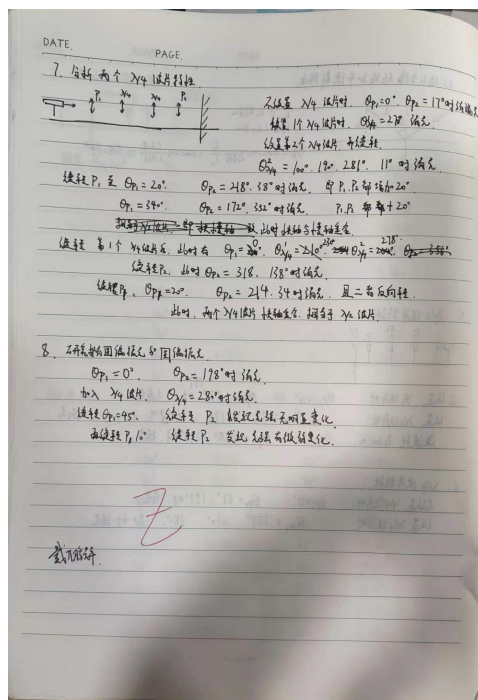 DATE. PAGE.
7. 分析两个 λ/4 波片特性
P₁ λ/4 λ/4 P₂
不放置 λ/4 波片时, θp₁=0°. θp₂=17°时消光
放置1个 λ/4 波片时. 消光
放置第2个 λ/4 波片. 并旋转.
θ²λ/4 = 100°. 190°. 281°. 11° 时消光
旋转 P₁ 至 θp₁=20°. θp₂=218°. 38°时消光. 即 P₁. P₂ 都增加20°
θp₁=340°. θp₂=172°. 352°时消光. P₁. P₂
此时快轴与慢轴重合.
旋转 第1个 λ/4 波片后. 此时有
旋转P₂, 此时 θp₂=318. 138°时消光.
θp₂=214. 34时消光. 且二者反向转.
此时, 两个 λ/4 波片 快轴重合. 相当于 λ/2 波片.
8.
θp₁=0°. θp₂=198°时消光.
加入 λ/4 波片. θλ/4=280°时消光.
旋转θp₁=45°. 旋转 P₂ 发现光强无明显变化.
再旋转P₁ 10° 旋转P₂ 发现光强有微弱变化.